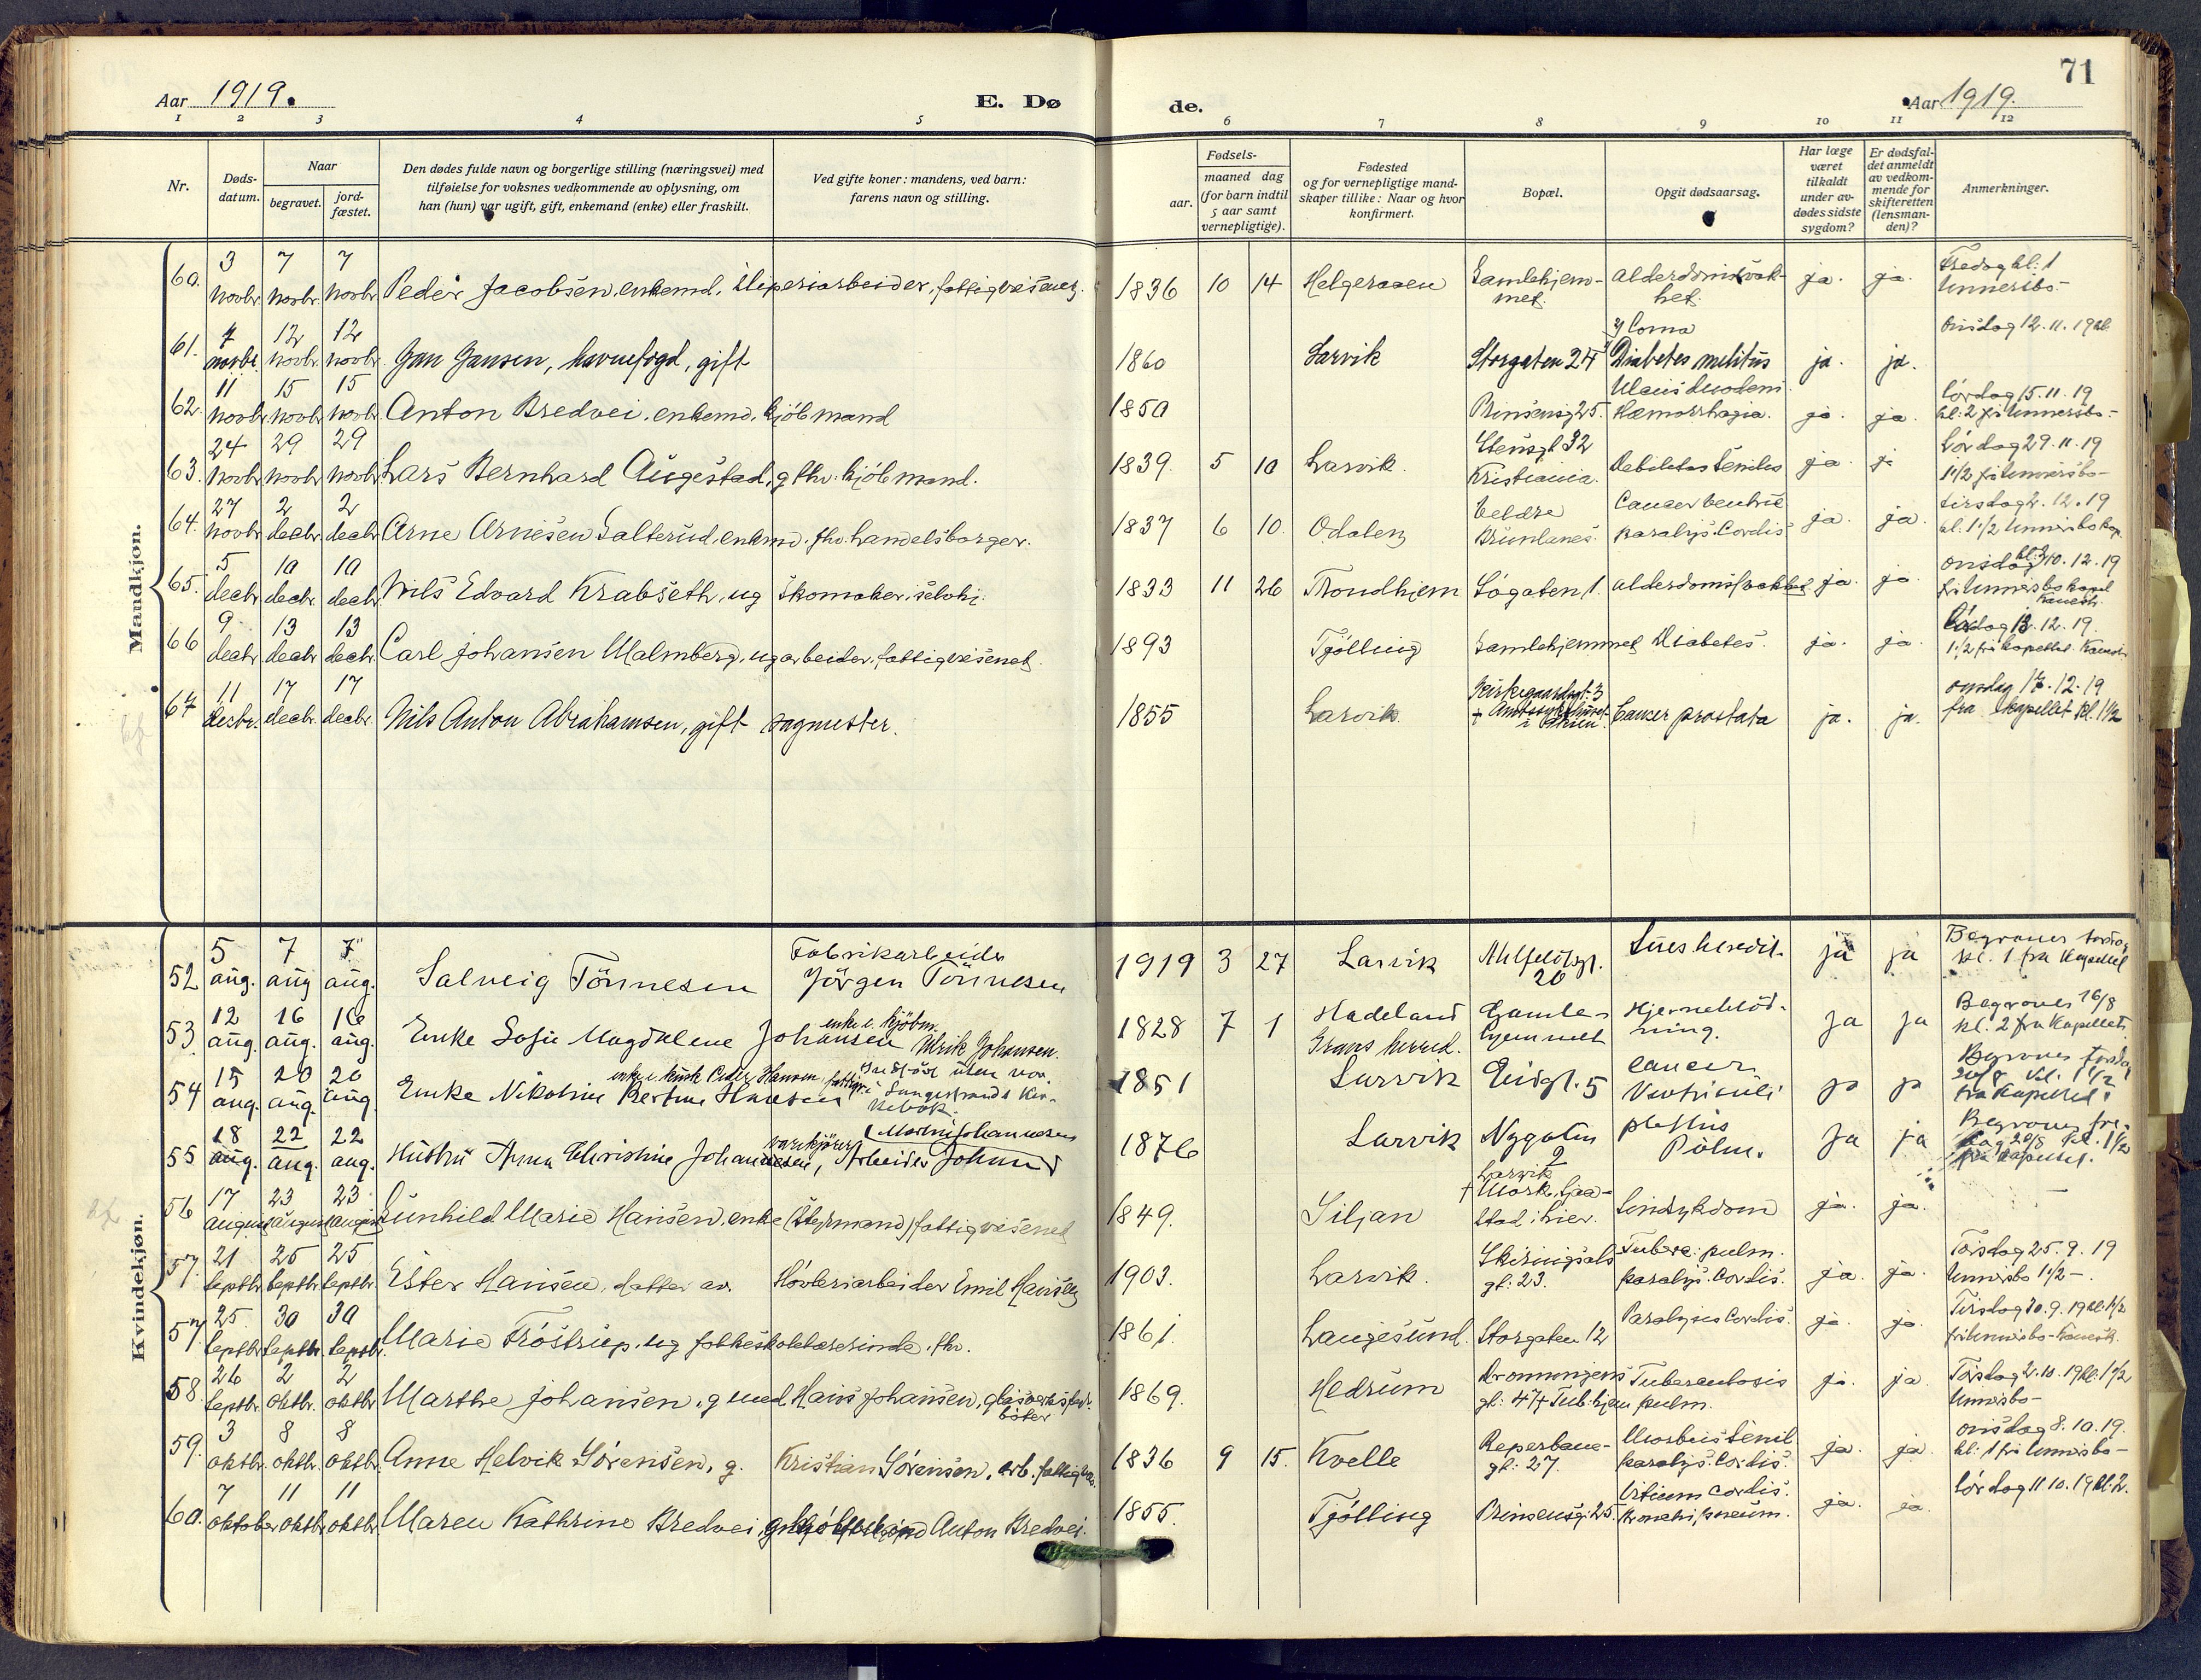 71
Aar 1919.
E. Dø
de.
Aar 1919.
1 2 3 4 5 6 7 8 9 10 11 12
Nr.
Døds-
datum.
Naar
begravet.
jord-
fæstet.
Den dødes fulde navn og borgerlige stilling (næringsvei) med
tilføielse for voksnes vedkommende av oplysning, om
han (hun) var ugift, gift, enkemand (enke) eller fraskilt.
Ved gifte koner: mandens, ved barn:
farens navn og stilling.
Fødsels-
aar.
maaned dag
(for barn indtil
5 aar samt
vernepligtige).
Fødested
og for vernepligtige mand-
skaper tillike: Naar og hvor
konfirmert.
Bopæl.
Opgit dødsaarsag.
Har læge
været
tilkaldt
under av-
dødes sidste
sygdom?
Er dødsfal-
det anmeldt
av vedkom-
mende for
skifteretten
(lensman-
den)?
Anmerkninger.
Mandkjøn.
60. 3 novbr. 7 novbr. 7 novbr. Peder Jacobsen, enkemd. sliperiarbeider, fattigvesenet. 1836 10 14 Helgeroaen Gamlehjem-
met. alderdomssvak-
het. ja. ja. Fredag kl: 1
61. 7 novbr. 12 novbr. 12 novbr. Jan Jansen, havnefogd, gift 1860 Larvik Storgaten 24 Coma
Diabetes melitus ja. ja. Onsdag 12.11.19 kl.
62. 11 novbr. 15 novbr. 15 novbr. Anton Bredvei, enkemd. kjøbmand 1850 Prinsensg 25. Ulcus duodem.
Hæmorrhagia. ja. ja. Lørdag 15.11.19
63. 24 novbr. 29 novbr. 29 novbr. Lars Bernhard Augestad, g. fhv. kjøbmand. 1839. 5 10 Larvik. Stensgt 32
Kristiania. Debilitas senilis ja. ja Lørdag 29.11.19
64. 27 novbr. 2 decbr. 2 decbr. Arne Arnesen Galterud, enkmd. fhv. handelsborger. 1837 6 10. Odalen Veldre
Brunlanes. Cancer ventric
paralys. Cordis ja. ja. tirsdag 2.12.19
65. 5 decbr. 10 decbr. 10 decbr. Nils Edvard Krabseth, ug skomaker, 1833 11 26 Trondhjem Søgaten 1. alderdomssvakhet ja. ja. onsdag 10.12.19
66 9 decbr. 13 decbr. 13 decbr. Carl Johansen Malmberg, ug arbeider, fattigvesenet. 1893 Tjølling Gamlehjemmet Diabetes. ja. ja. Lørdag 13.12.19.
67 11 decbr. 17 decbr. 17 decbr. Nils Anton Abrahamsen, gift sagmester. 1855 Larvik. Kirkegaardsgt. 3
Cancer prostata ja. ja. onsdag 17.12.19
fra kapellet kl. 1½
Kvindekjøn.
52 5 aug. 7 aug 7 aug. Salveig Tönnesen Fabrikarbeider
Jörgen Tönnesen 1919 3 27 Larvik 20 Lues heredit. ja ja Begraves
kl. 1 fra Kapellet
53 12 aug. 16 aug. 16 aug. Enke Sofie Magdalene Johansen enke e. kjøbm.
Ulrik Johansen. 1828 7 1 Hadeland
Grans herred. Gamle-
hjemmet Hjerneblöd-
ning. ja ja Begraves 16/8
kl. 2 fra Kapellet
54 15 aug. 20 aug. 20 aug. Enke Nikoline Bertine Hansen 1851 Larvik 5 cancer
Ventriculi ja ja Begraves
20/8 kl. 1½
fra Kapellet.
55 18 aug. 22 aug. 22 aug. Hustru Anna Christine Johannesen, Arbeider 1876 Larvik Nygaten
2 Pulm. ja ja Begraves fre-
dag kl. 1½
fra Kapellet.
56 17 august 23 august 23 august Gunhild Marie Hansen, enke (Styrmand) fattigvesenet 1849. Siljan Larvik
Sindsykdom ja. ja.
57. 21 septbr. 25 septbr. 25 septbr. Ester Hansen, datter av. Høvleriarbeider Emil Hansen 1903. Larvik. Skiringsals
gt: 23. Tuberc: pulm.
paralys. Cordis. ja. ja. Torsdag 25.9.19
57. 25 septbr. 30 septbr. 30 septbr. Marie Tröstrup, ug folkeskolelærerinde, fhv. 1861. Langesund. Storgaten 12 Paralysis Cordis. ja. ja. Tirsdag 30.9.19 kl: 1½
58. 26 septbr. 2 oktbr. 2 oktbr. Marthe Johansen, g med Hans Johansen, 1869. Hedrum Dronningens
gt: 47 Tub:hjem Tuberculosis
pulm. ja. ja. Torsdag 2.10.19 kl. 1½
59. 3 oktbr. 8 oktbr. 8 oktbr. Anne Helvik Sörensen, g. Kristian Sörensen, arb. 1836 9 15. Kvelle Reperbane-
gt: 27. Morbus senil
paralys. Cordis. ja. ja. onsdag 8.10.19.
60. 7 oktober 11 oktbr. 11 oktbr. Maren Kathrine Bredvei, Anton Bredvei. 1855. Tjølling Prinsensg: 25. Vitium cordis. ja. ja. lørdag 11 10.19 kl: 2.